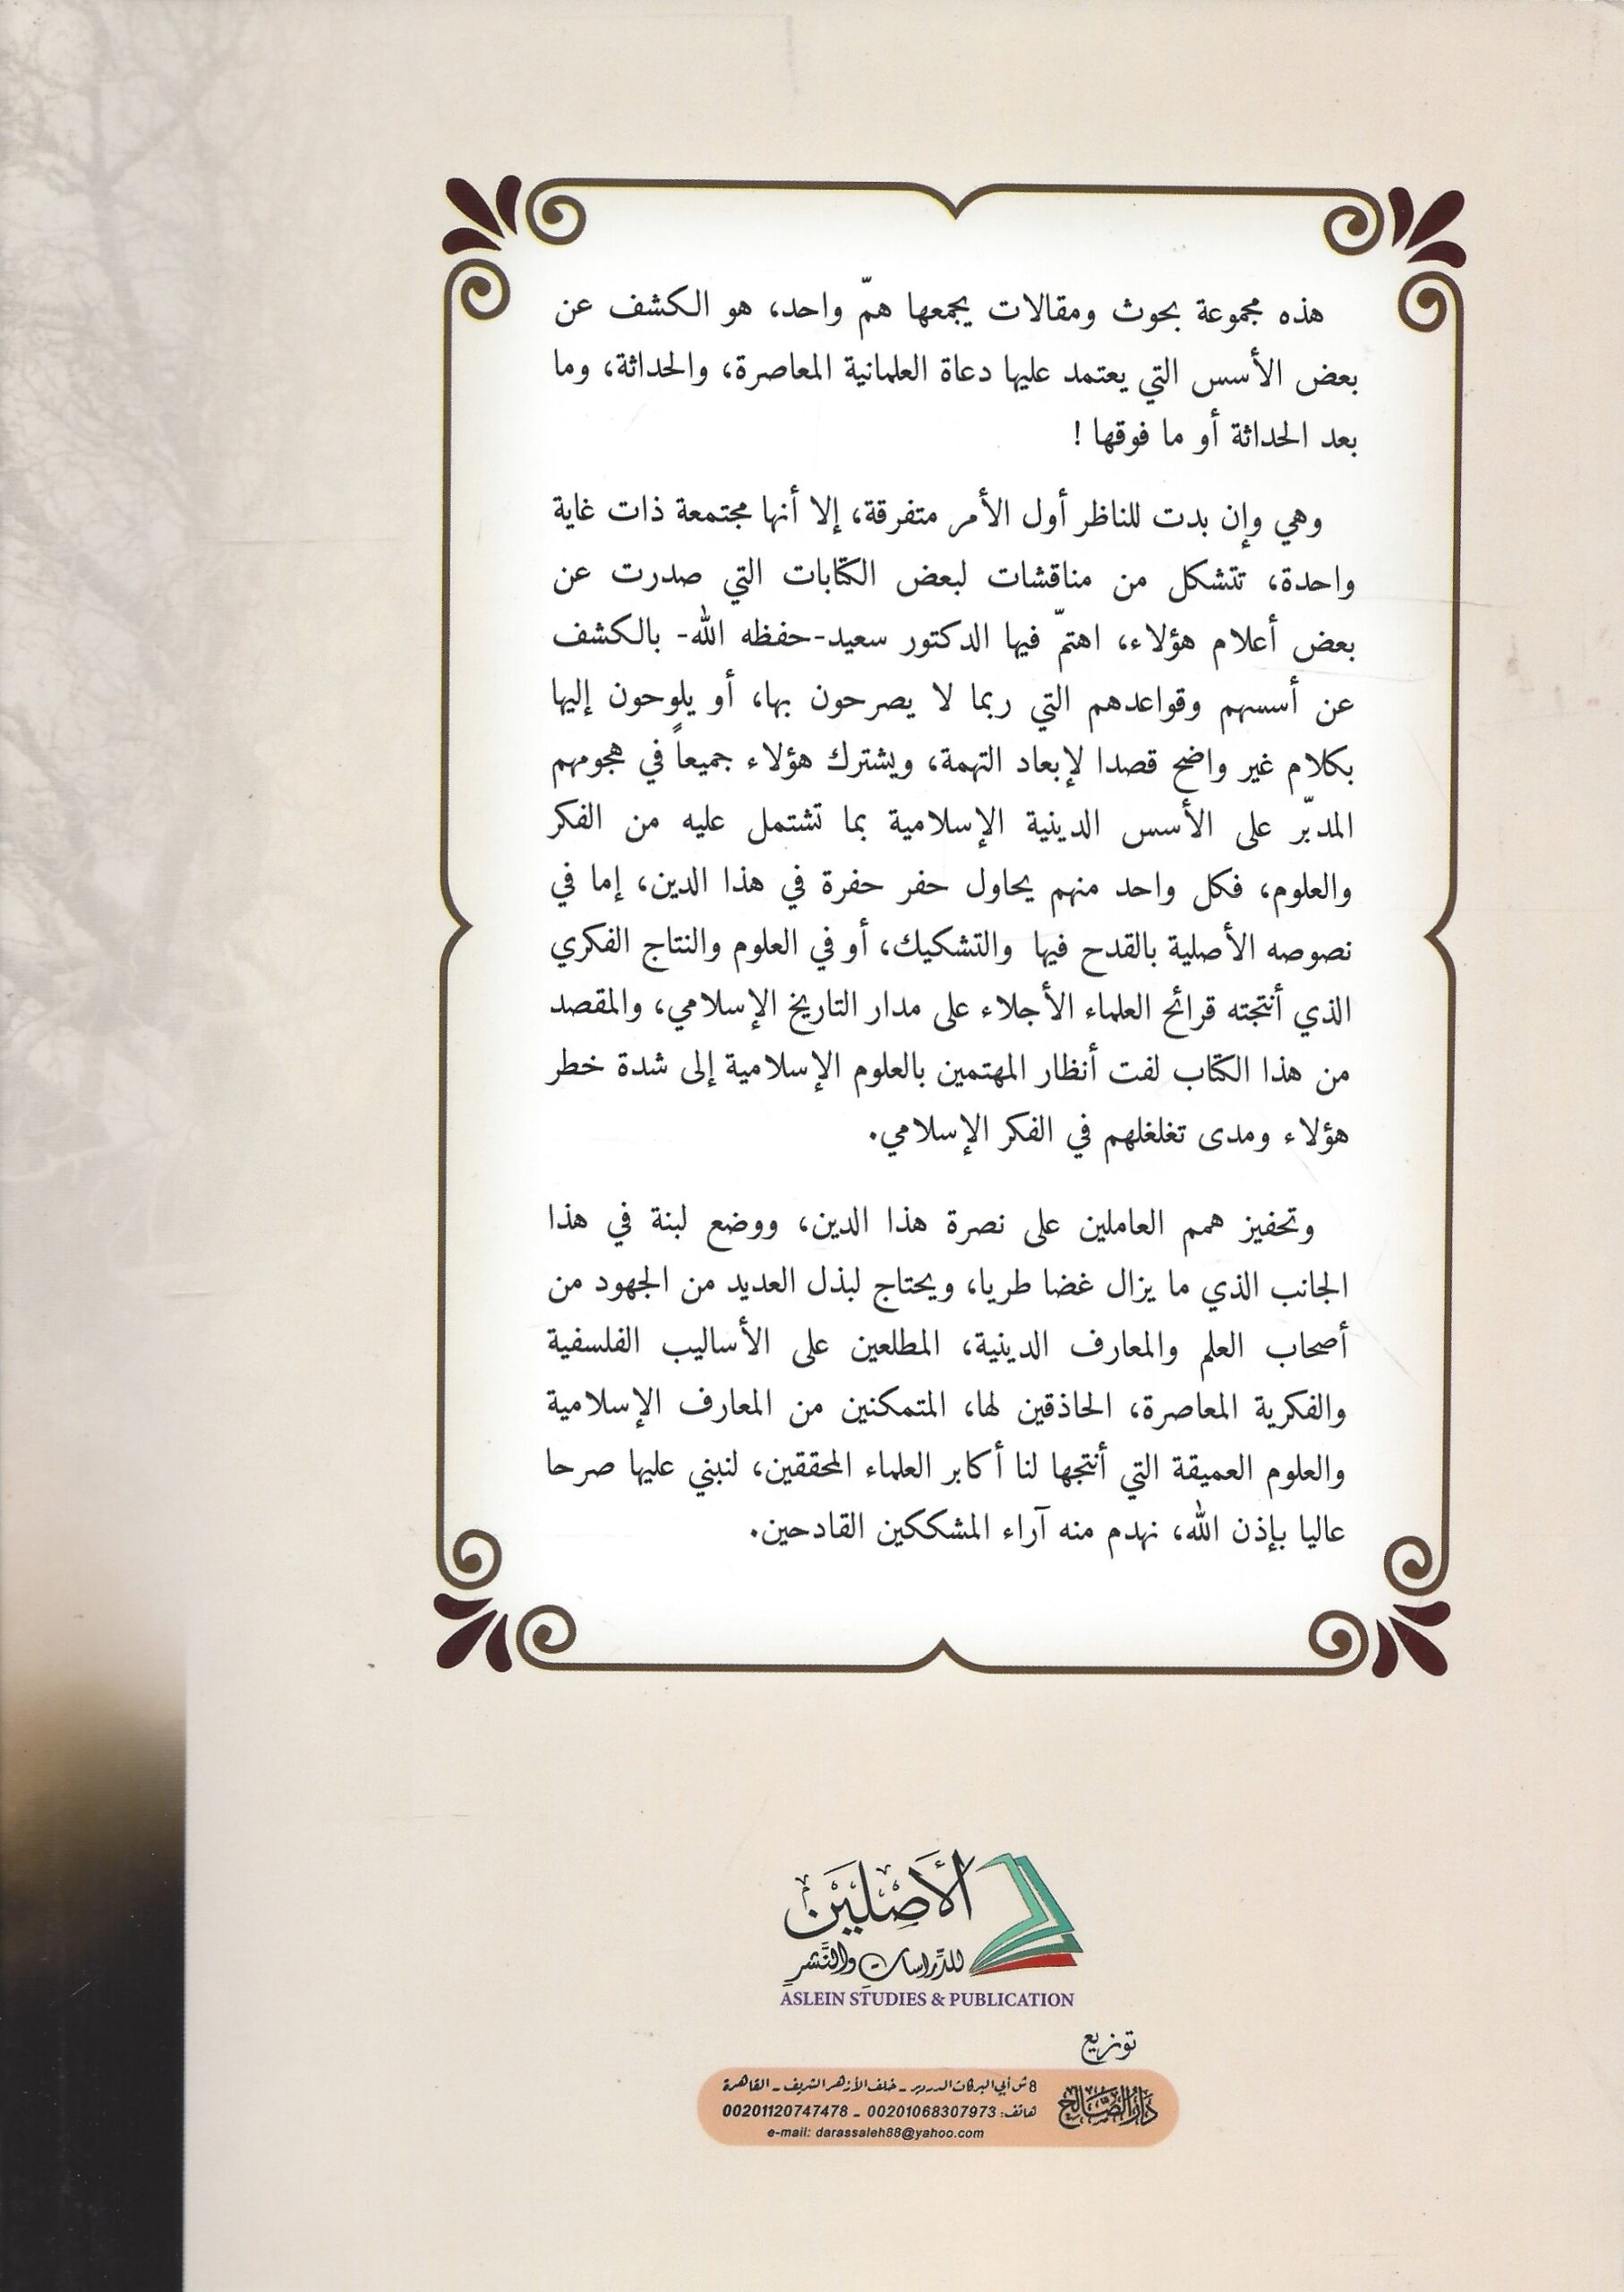 هذه مجموعة بحوث ومقالات يجمعها همّ واحد، هو الكشف عن
بعض الأسس التي يعتمد عليها دعاة العلمانية المعاصرة، والحداثة، وما
بعد الحداثة أو ما فوقها !
وهي وإن بدت للناظر أول الأمر متفرقة، إلا أنها مجتمعة ذات غاية
واحدة، تتشكل من مناقشات لبعض الكتابات التي صدرت عن
بعض أعلام هؤلاء، اهتمّ فيها الدكتور سعيد-حفظه الله- بالكشف
عن أسسهم وقواعدهم التي ربما لا يصرحون بها، أو يلوحون إليها
بكلام غير واضح قصدا لإبعاد التهمة، ويشترك هؤلاء جميعاً في هجومهم
المدبّر على الأسس الدينية الإسلامية بما تشتمل عليه من الفكر
والعلوم، فكل واحد منهم يحاول حفر حفرة في هذا الدين، إما في
نصوصه الأصلية بالقدح فيها والتشكيك، أو في العلوم والنتاج الفكري
الذي أنتجته قرائح العلماء الأجلاء على مدار التاريخ الإسلامي، والمقصد
من هذا الكتاب لفت أنظار المهتمين بالعلوم الإسلامية إلى شدة خطر
هؤلاء ومدى تغلغلهم في الفكر الإسلامي.
وتحفيز همم العاملين على نصرة هذا الدين، ووضع لبنة في هذا
الجانب الذي ما يزال غضا طريا، ويحتاج لبذل العديد من الجهود من
أصحاب العلم والمعارف الدينية، المطلعين على الأساليب الفلسفية
والفكرية المعاصرة، الحاذقين لها، المتمكنين من المعارف الإسلامية
والعلوم العميقة التي أنتجها لنا أكابر العلماء المحققين، لنبني عليها صرحا
عاليا بإذن الله، نهدم منه آراء المشككين القادحين.
الأَصْلَيْن
للدِّراسات والنَّشر
ASLEIN STUDIES & PUBLICATION
توزيع
دار الصالح
8 ش أبي البركات الدردير - خلف الأزهر الشريف - القاهرة
هاتف: 00201068307973 - 00201120747478
e-mail: darassaleh88@yahoo.com